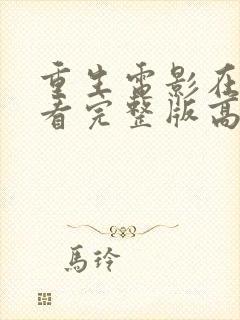 重生电影在
看完整版高
馬玲